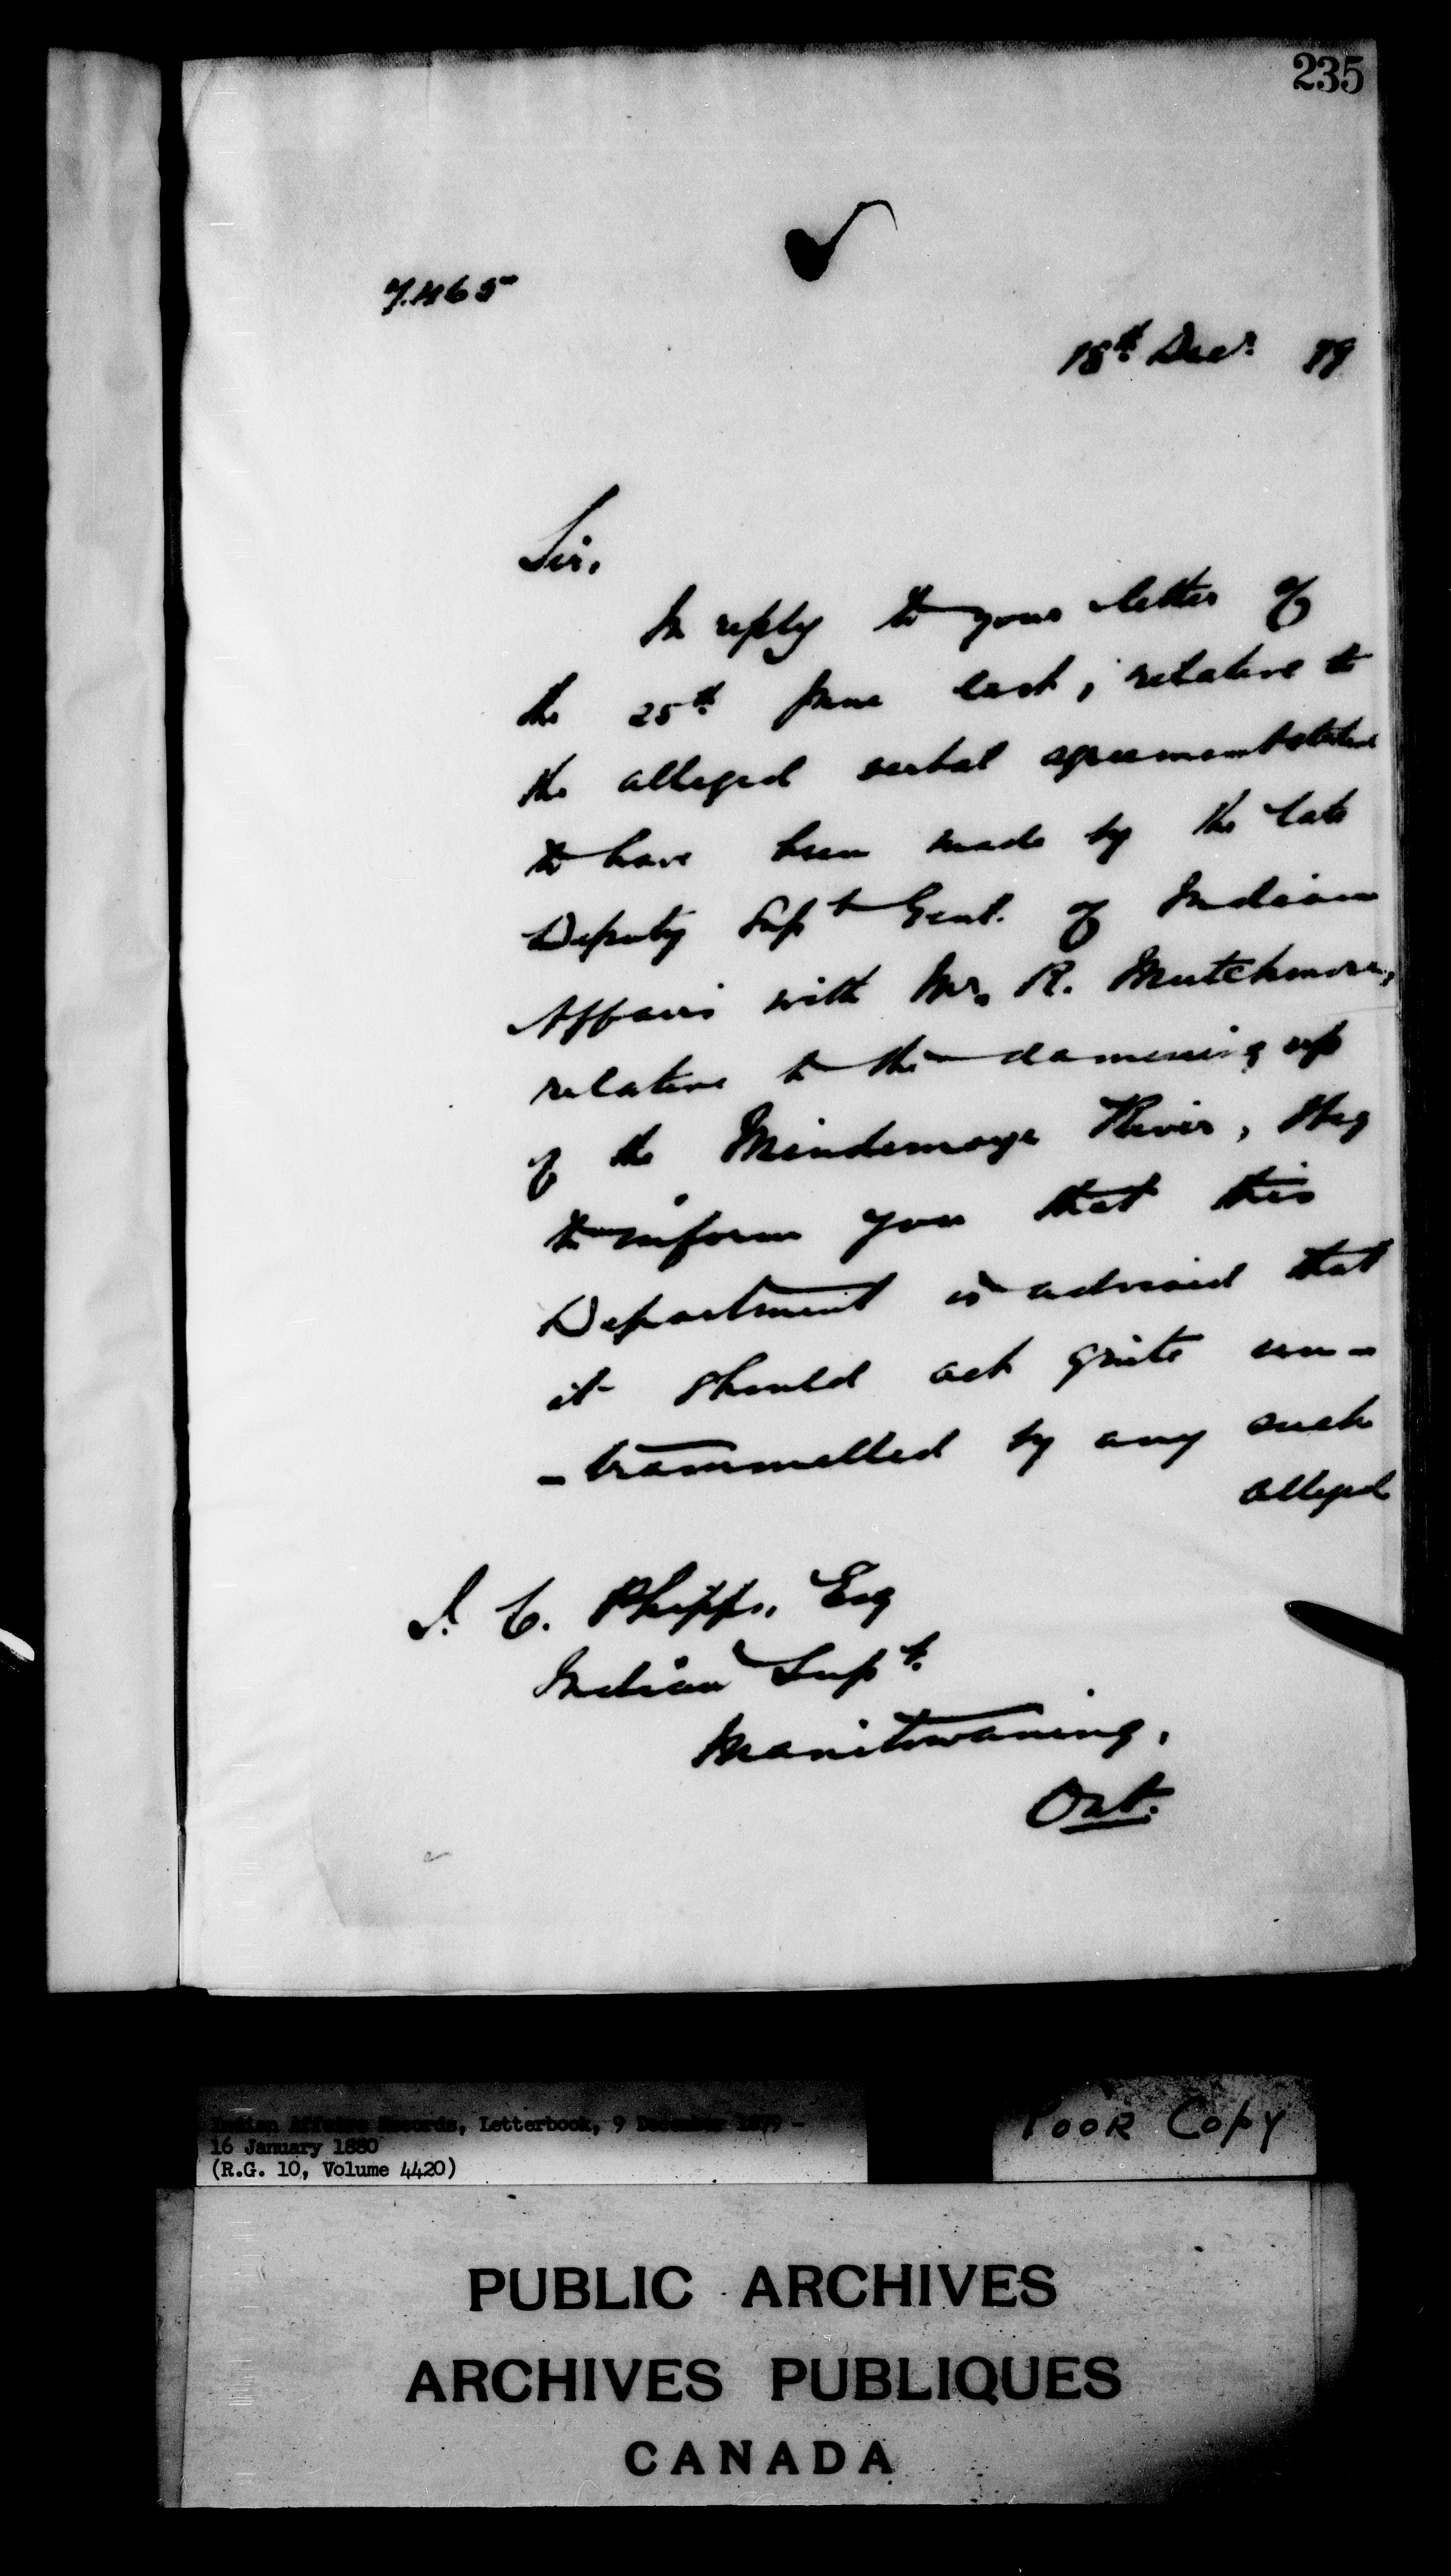 235
7.465
18th Decr. 79
Sir,
In reply to your letter of
the 25th June last, relative to
the alleged verbal agreement stated
to have been made by the late
Deputy Supt Genl. of Indian
Affairs with Mr. R. Mutchmore,
relative to the damming up
of the Mindemoya River, I beg
to inform you that this
Department is advised that
it should act quite un-
-trammelled by any such
alleged
J. C. Phipps, Esq
Indian Supt.
Manitowaning,
Ont.
Indian Affairs Records, Letterbook, 9 December 1879 -
16 January 1880
(R.G. 10, Volume 4420)
POOR COPY
PUBLIC ARCHIVES
ARCHIVES PUBLIQUES
CANADA